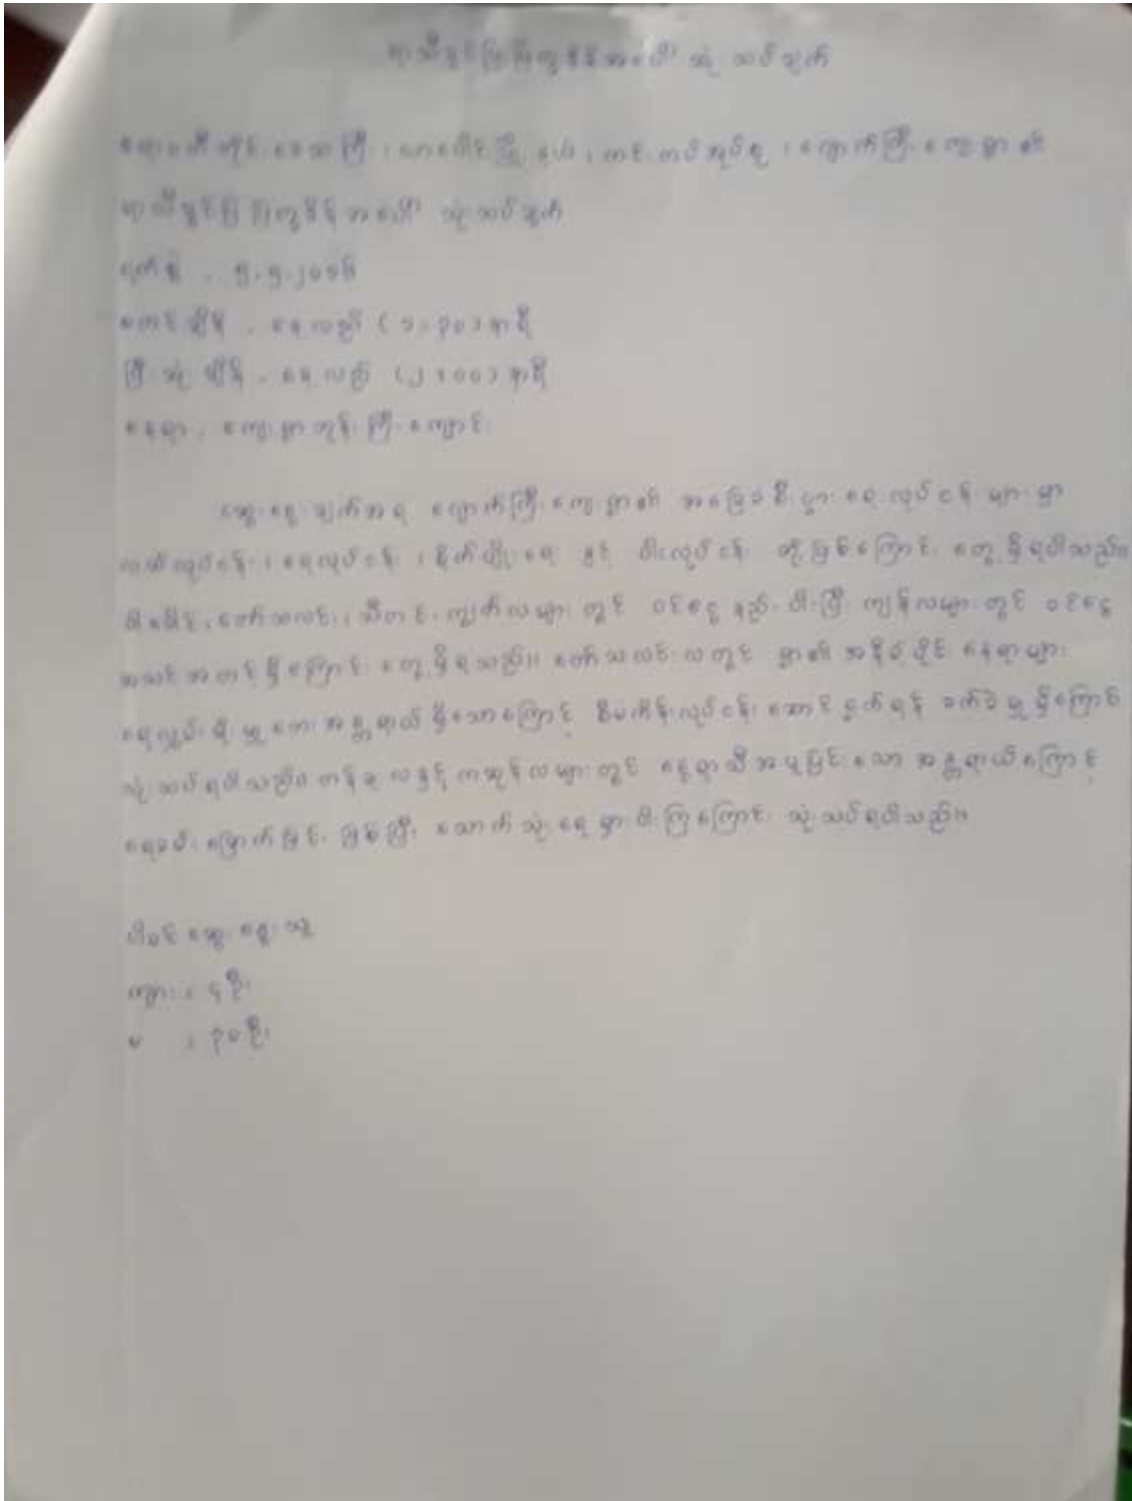 ရာသီခွင်ပြ ပြက္ခဒိန်အပေါ် သုံးသပ်ချက်
ဧရာဝတီတိုင်းဒေသကြီး၊ သာပေါင်းမြို့နယ်၊ ကင်းတပ်အုပ်စု၊ ကျောက်ကြီးကျေးရွာ၏
ရာသီခွင်ပြ ပြက္ခဒိန်အပေါ် သုံးသပ်ချက်
ရက်စွဲ - ၅.၅.၂၀၁၆
စတင်ချိန် - နေ့လည် (၁:၃၀) နာရီ
ပြီးဆုံးချိန် - နေ့လည် (၂:၀၀) နာရီ
နေရာ - ကျေးရွာဘုန်းကြီးကျောင်း
ဆွေးနွေးချက်အရ ကျောက်ကြီးကျေးရွာ၏ အခြေခံစီးပွားရေးလုပ်ငန်းများမှာ
လယ်လုပ်ငန်း၊ ရေလုပ်ငန်း၊ စိုက်ပျိုးရေး နှင့် ဝါးလုပ်ငန်း တို့ဖြစ်ကြောင်း တွေ့ရှိရပါသည်။
ဝါခေါင်၊ တော်သလင်း၊ သီတင်းကျွတ်လများတွင် ဝင်ငွေနည်းပါးပြီး ကျန်လများတွင် ဝင်ငွေ
အသင့်အတင့်ရှိကြောင်း တွေ့ရှိရသည်။ တော်သလင်းလတွင် ရွာ၏ အနိမ့်ပိုင်းနေရာများ
ရေလျှံမှု ဘေးအန္တရာယ်ရှိသောကြောင့် စီမံကိန်းလုပ်ငန်း ဆောင်ရွက်ရန် ခက်ခဲမှုရှိကြောင်း
သုံးသပ်ရပါသည်။ တန်ခူးလနှင့် ကဆုန်လများတွင် နွေရာသီအပူပြင်းသော အန္တရာယ်ကြောင့်
ရေခမ်းခြောက်ခြင်း ဖြစ်ပြီး သောက်သုံးရေ ရှားပါးကြကြောင်း သုံးသပ်ရပါသည်။
ပါဝင်ဆွေးနွေးသူ
ကျား - ၄ ဦး
မ - ၃၀ ဦး